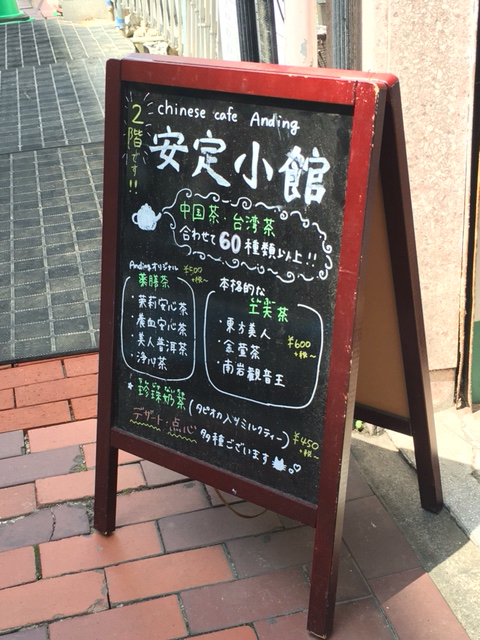 chinese cafe Anding
2階です!!
安定小館
中国茶・台湾茶
合わせて60種類以上!!
Andingオリジナル
薬膳茶
¥500+税〜
・茉莉安心茶
・養血安心茶
・美人普洱茶
・浄心茶
本格的な
工芙茶
・東方美人
・金萱茶
・南岩観音王
¥600+税〜
★珍珠奶茶(タピオカ入りミルクティー)
¥450+税〜
デザート・点心
多種ございます